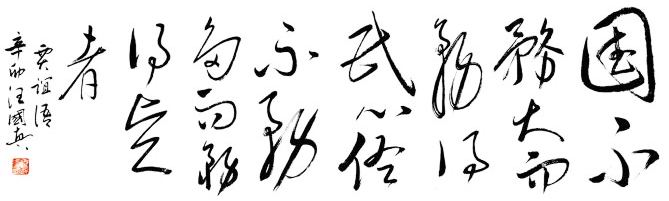 国不
務大而
務得
民心佐
不務
多而務
得賢
者
賈誼語
辛卯汪國真